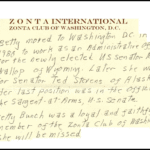 ZONTA INTERNATIONAL
ZONTA CLUB OF WASHINGTON, D.C.
Betty moved to Washington DC in
to work as an Administrative
for the newly elected US Senator
Wallop of Wyoming. Later she
for Senator Ted Stevens of Alaska
Her last position was in the office
Sargent-at-Arms, U.S. Senate
Betty was a loyal and faithful
member of the Zonta Club of
She will be missed